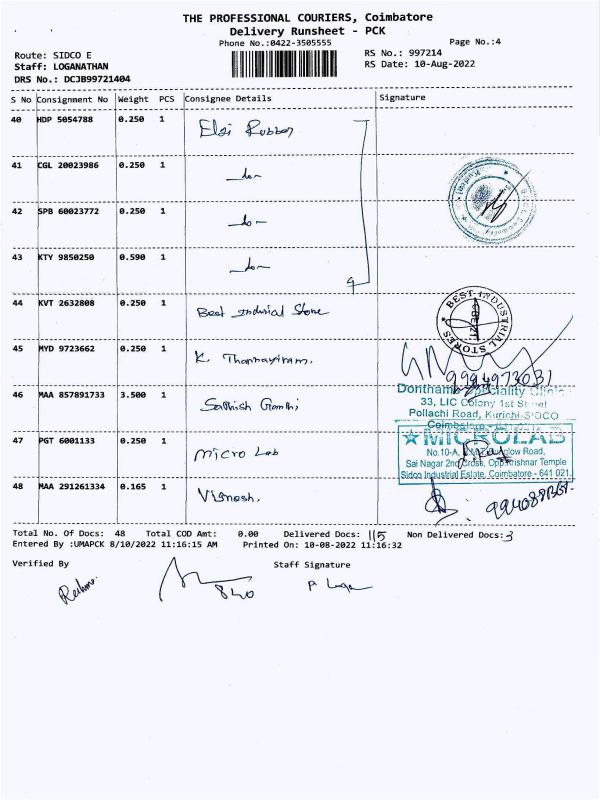 THE PROFESSIONAL COURIERS, Coimbatore
Delivery Runsheet - PCK
Phone No.:0422-3505555 Page No.:4
Route: SIDCO E RS No.: 997214
Staff: LOGANATHAN RS Date: 10-Aug-2022
DRS No.: DCJB99721404
S No Consignment No Weight PCS Consignee Details Signature
40 HDP 5054788 0.250 1 Elgi Rubber
41 CGL 20023986 0.250 1 —do—
42 SPB 60023772 0.250 1 —do—
43 KTY 9850250 0.590 1 —do—
44 KVT 2632808 0.250 1 Best Indusrial Store
BEST-INDUSTRIAL STORES
45 MYD 9723662 0.250 1 K. Thannayiram.
46 MAA 857891733 3.500 1 Sathish Gandhi
Clinic
33, LIC Colony 1st Street
Pollachi Road, Kurichi-SIDCO
Coimbatore
47 PGT 6001133 0.250 1 Micro Lab
MICROLAB
No.10-A, Road,
Sai Nagar 2nd Cross, Opp.Krishnar Temple
Sidco Industrial Estate, Coimbatore - 641 021.
48 MAA 291261334 0.165 1 Vignesh.
Total No. Of Docs: 48 Total COD Amt: 0.00 Delivered Docs: 115 Non Delivered Docs: 3
Entered By :UMAPCK 8/10/2022 11:16:15 AM Printed On: 10-08-2022 11:16:32
Verified By Staff Signature